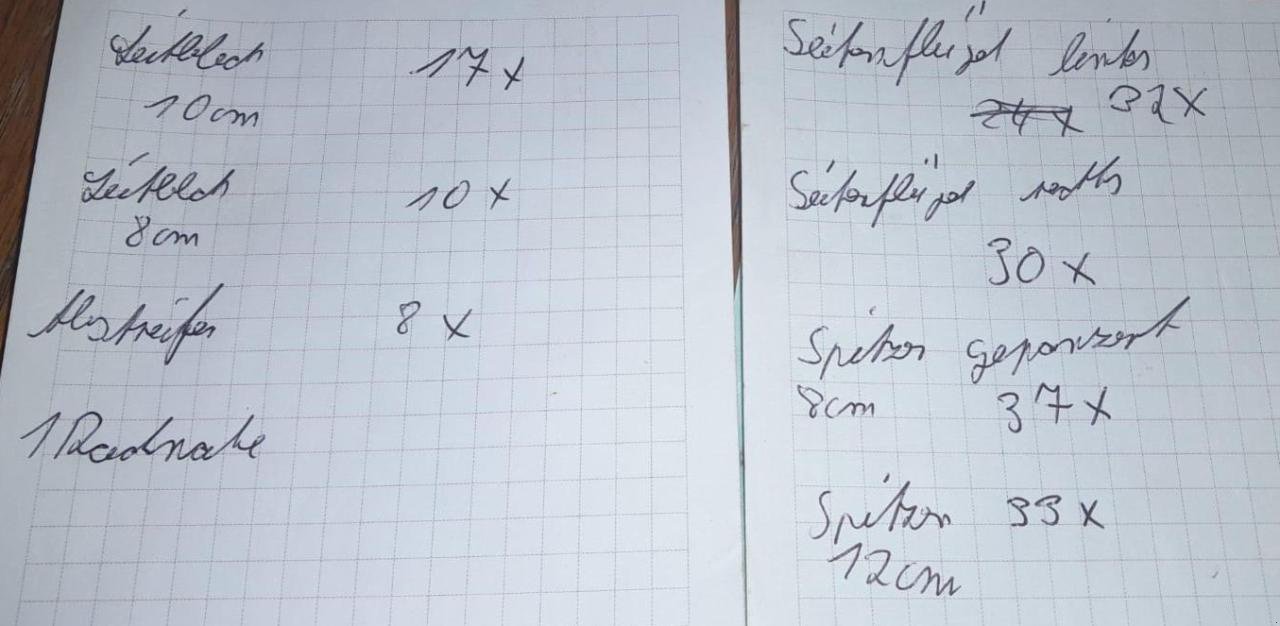 Leitblech 17x
10cm
Leitblech 10x
8cm
Abstreifer 8x
1 Radnabe
Seitenflügel links
24x 32x
Seitenflügel rechts
30x
Spitzen gepanzert
8cm 37x
Spitzen 33x
12cm